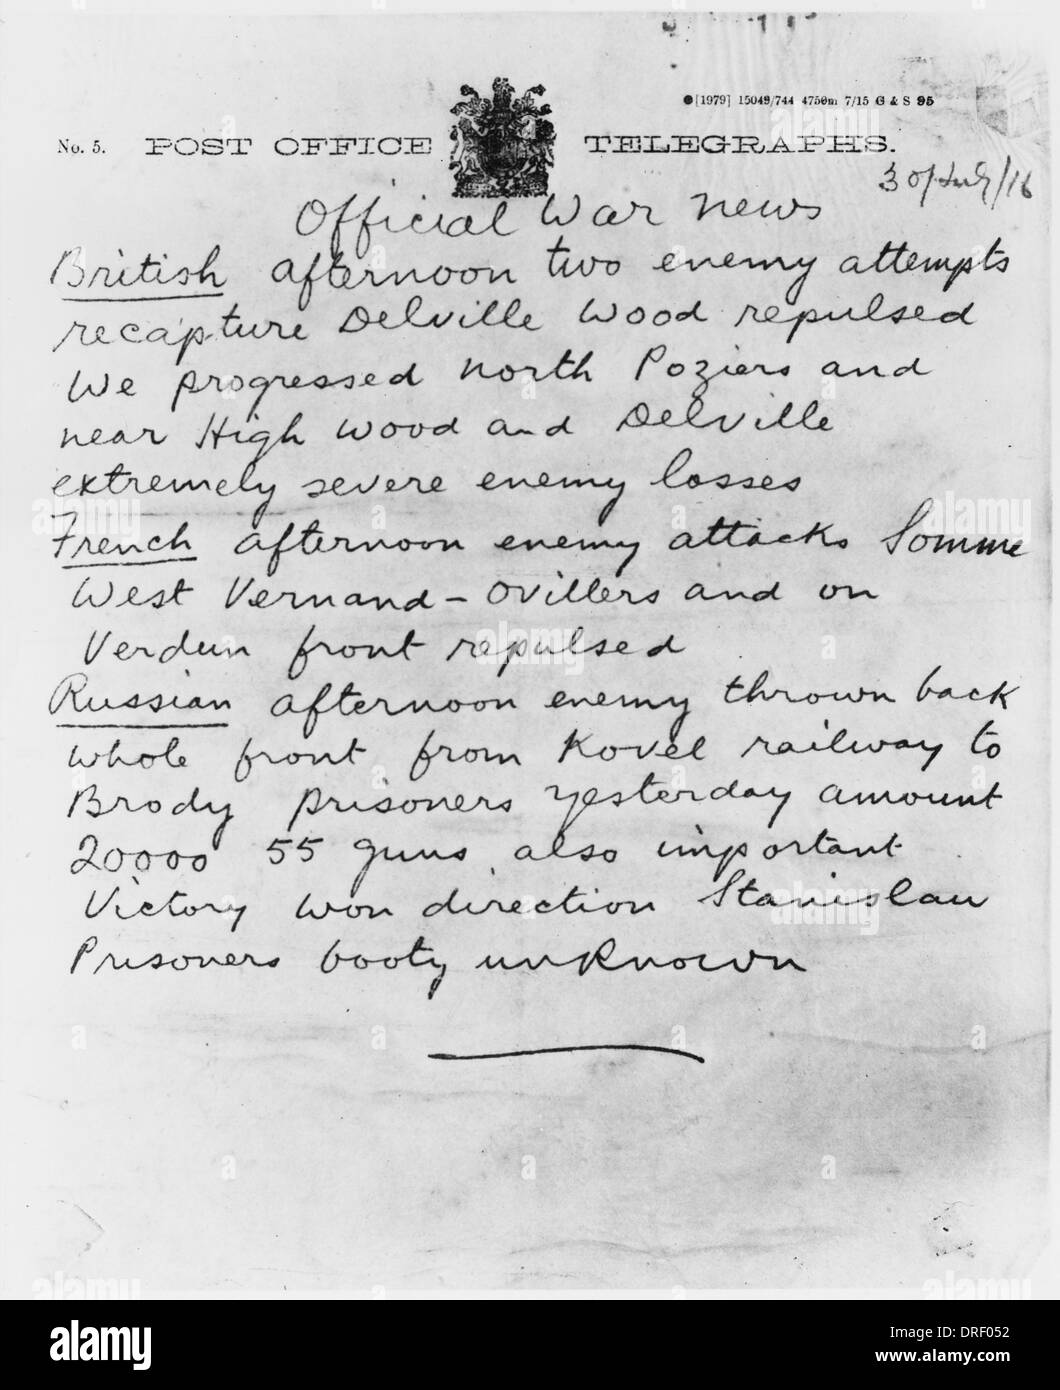 ●[1979] 15049/744 4750m 7/15 G & S 95
No. 5. POST OFFICE TELEGRAPHS.
30/July/16
Official War news
British afternoon two enemy attempts
recapture Delville Wood repulsed
We progressed north Poziers and
near High Wood and Delville
extremely severe enemy losses
French afternoon enemy attacks Somme
West Vernand - Ovillers and on
Verdun front repulsed
Russian afternoon enemy thrown back
whole front from Kovel railway to
Brody prisoners yesterday amount
20000 55 guns also important
Victory won direction Stanislau
Prisoners booty unknown
alamy
Image ID: DRF052
www.alamy.com